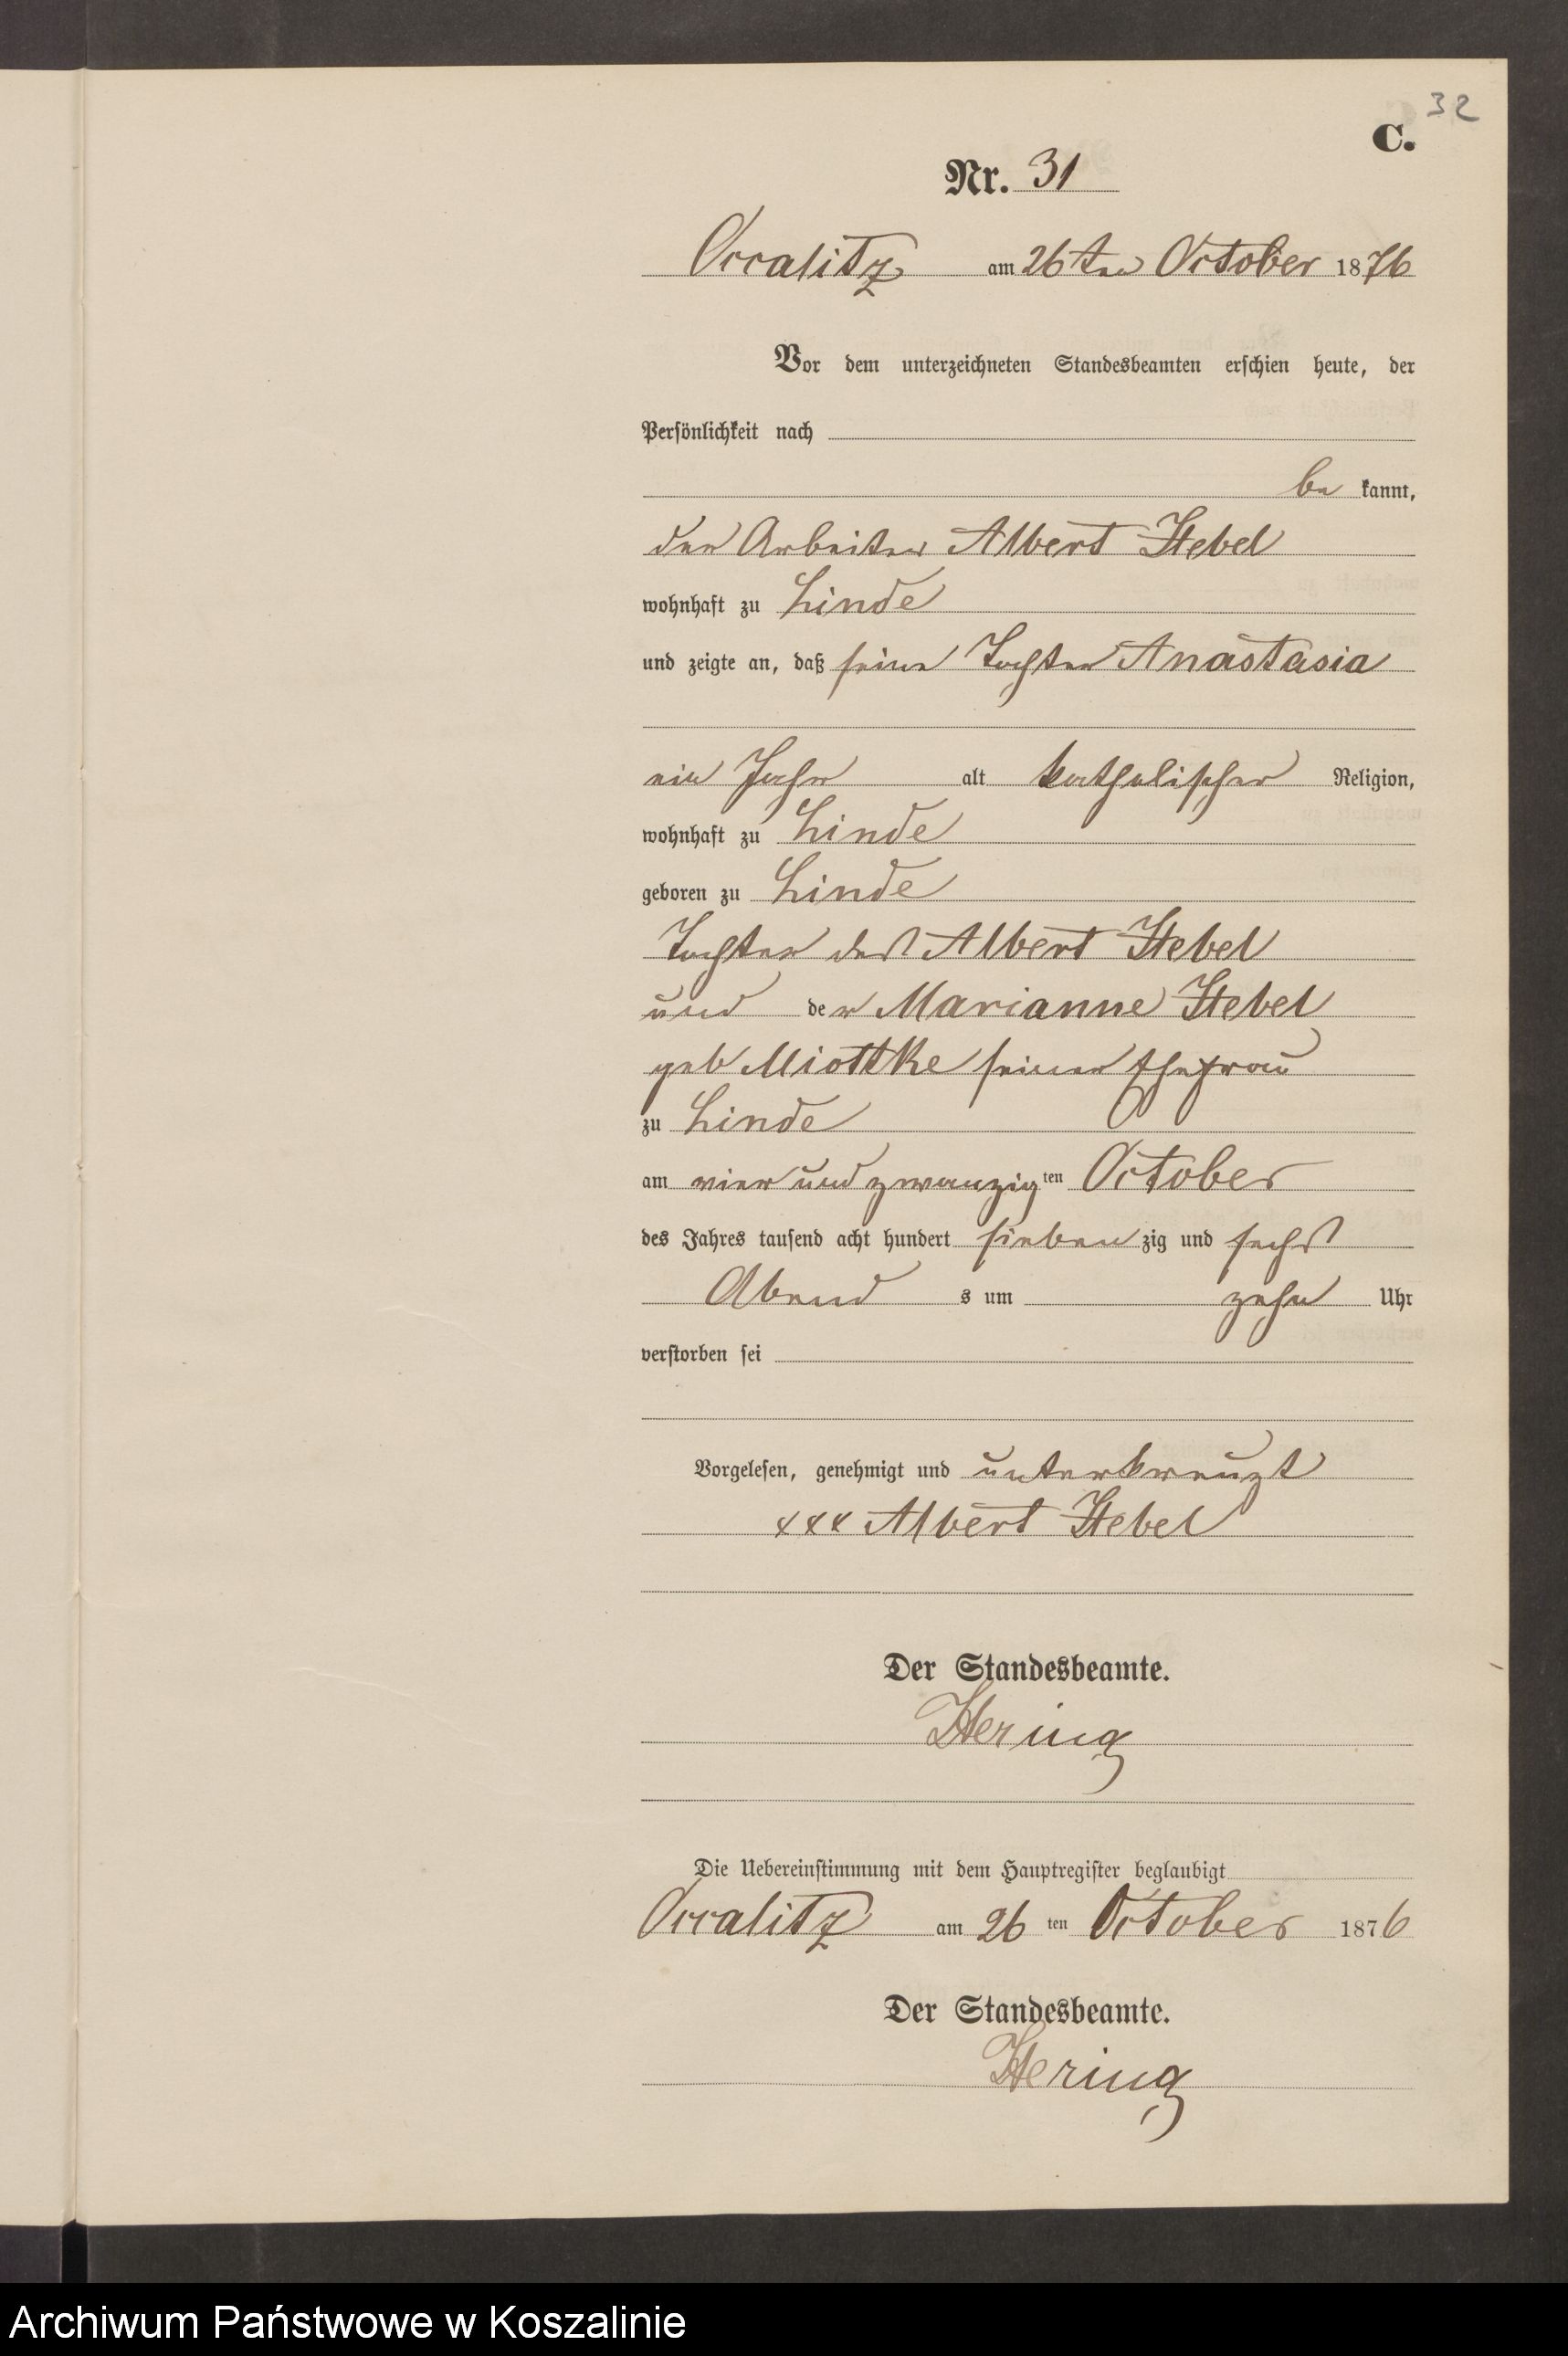 32
C.
Nr. 31
Occalitz am 26ten October 1876
Vor dem unterzeichneten Standesbeamten erschien heute, der
Persönlichkeit nach
be kannt,
der Arbeiter Albert Hebel
wohnhaft zu Linde
und zeigte an, daß seine Tochter Anastasia
ein Jahr alt katholischer Religion,
wohnhaft zu Linde
geboren zu Linde
Tochter des Albert Hebel
und der Marianne Hebel
geb Miottke seiner Ehefrau
zu Linde
am vier und zwanzig ten October
des Jahres tausend acht hundert sieben zig und sechs
Abend s um zehn Uhr
verstorben sei
Vorgelesen, genehmigt und unterkreuzt
xxx Albert Hebel
Der Standesbeamte.
Hering
Die Uebereinstimmung mit dem Hauptregister beglaubigt
Occalitz am 26 ten October 1876
Der Standesbeamte.
Hering
Archiwum Państwowe w Koszalinie